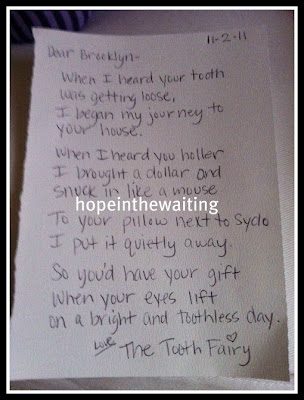 11-2-11
Dear Brooklyn-
When I heard your tooth
was getting loose,
I began my journey to
your house.
When I heard you holler
I brought a dollar and
snuck in like a mouse
hopeinthewaiting
To your pillow next to Sydo
I put it quietly away.
So you'd have your gift
when your eyes lift
on a bright and toothless day.
Love
The Tooth Fairy